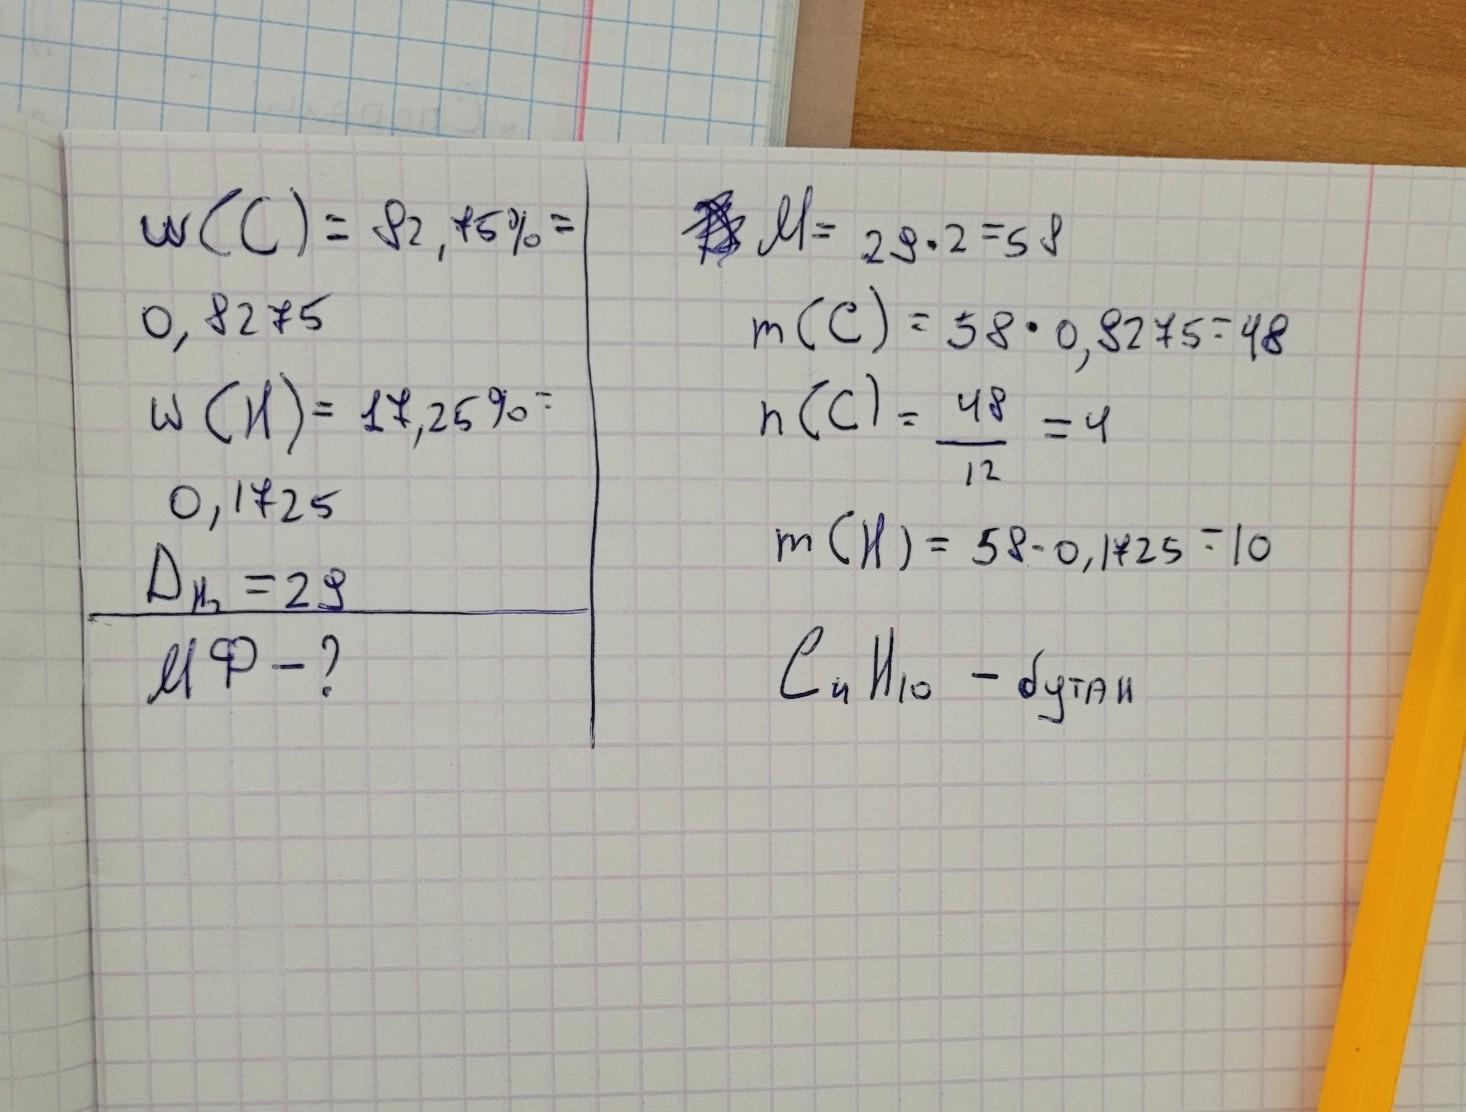 w(C) = 82,75% =
0,8275
w(H) = 17,25% =
0,1725
D_H₂ = 29
МФ - ?
M = 29·2=58
m(C) = 58·0,8275=48
n(C) = 48/12 = 4
m(H) = 58·0,1725=10
C₄H₁₀ - бутан